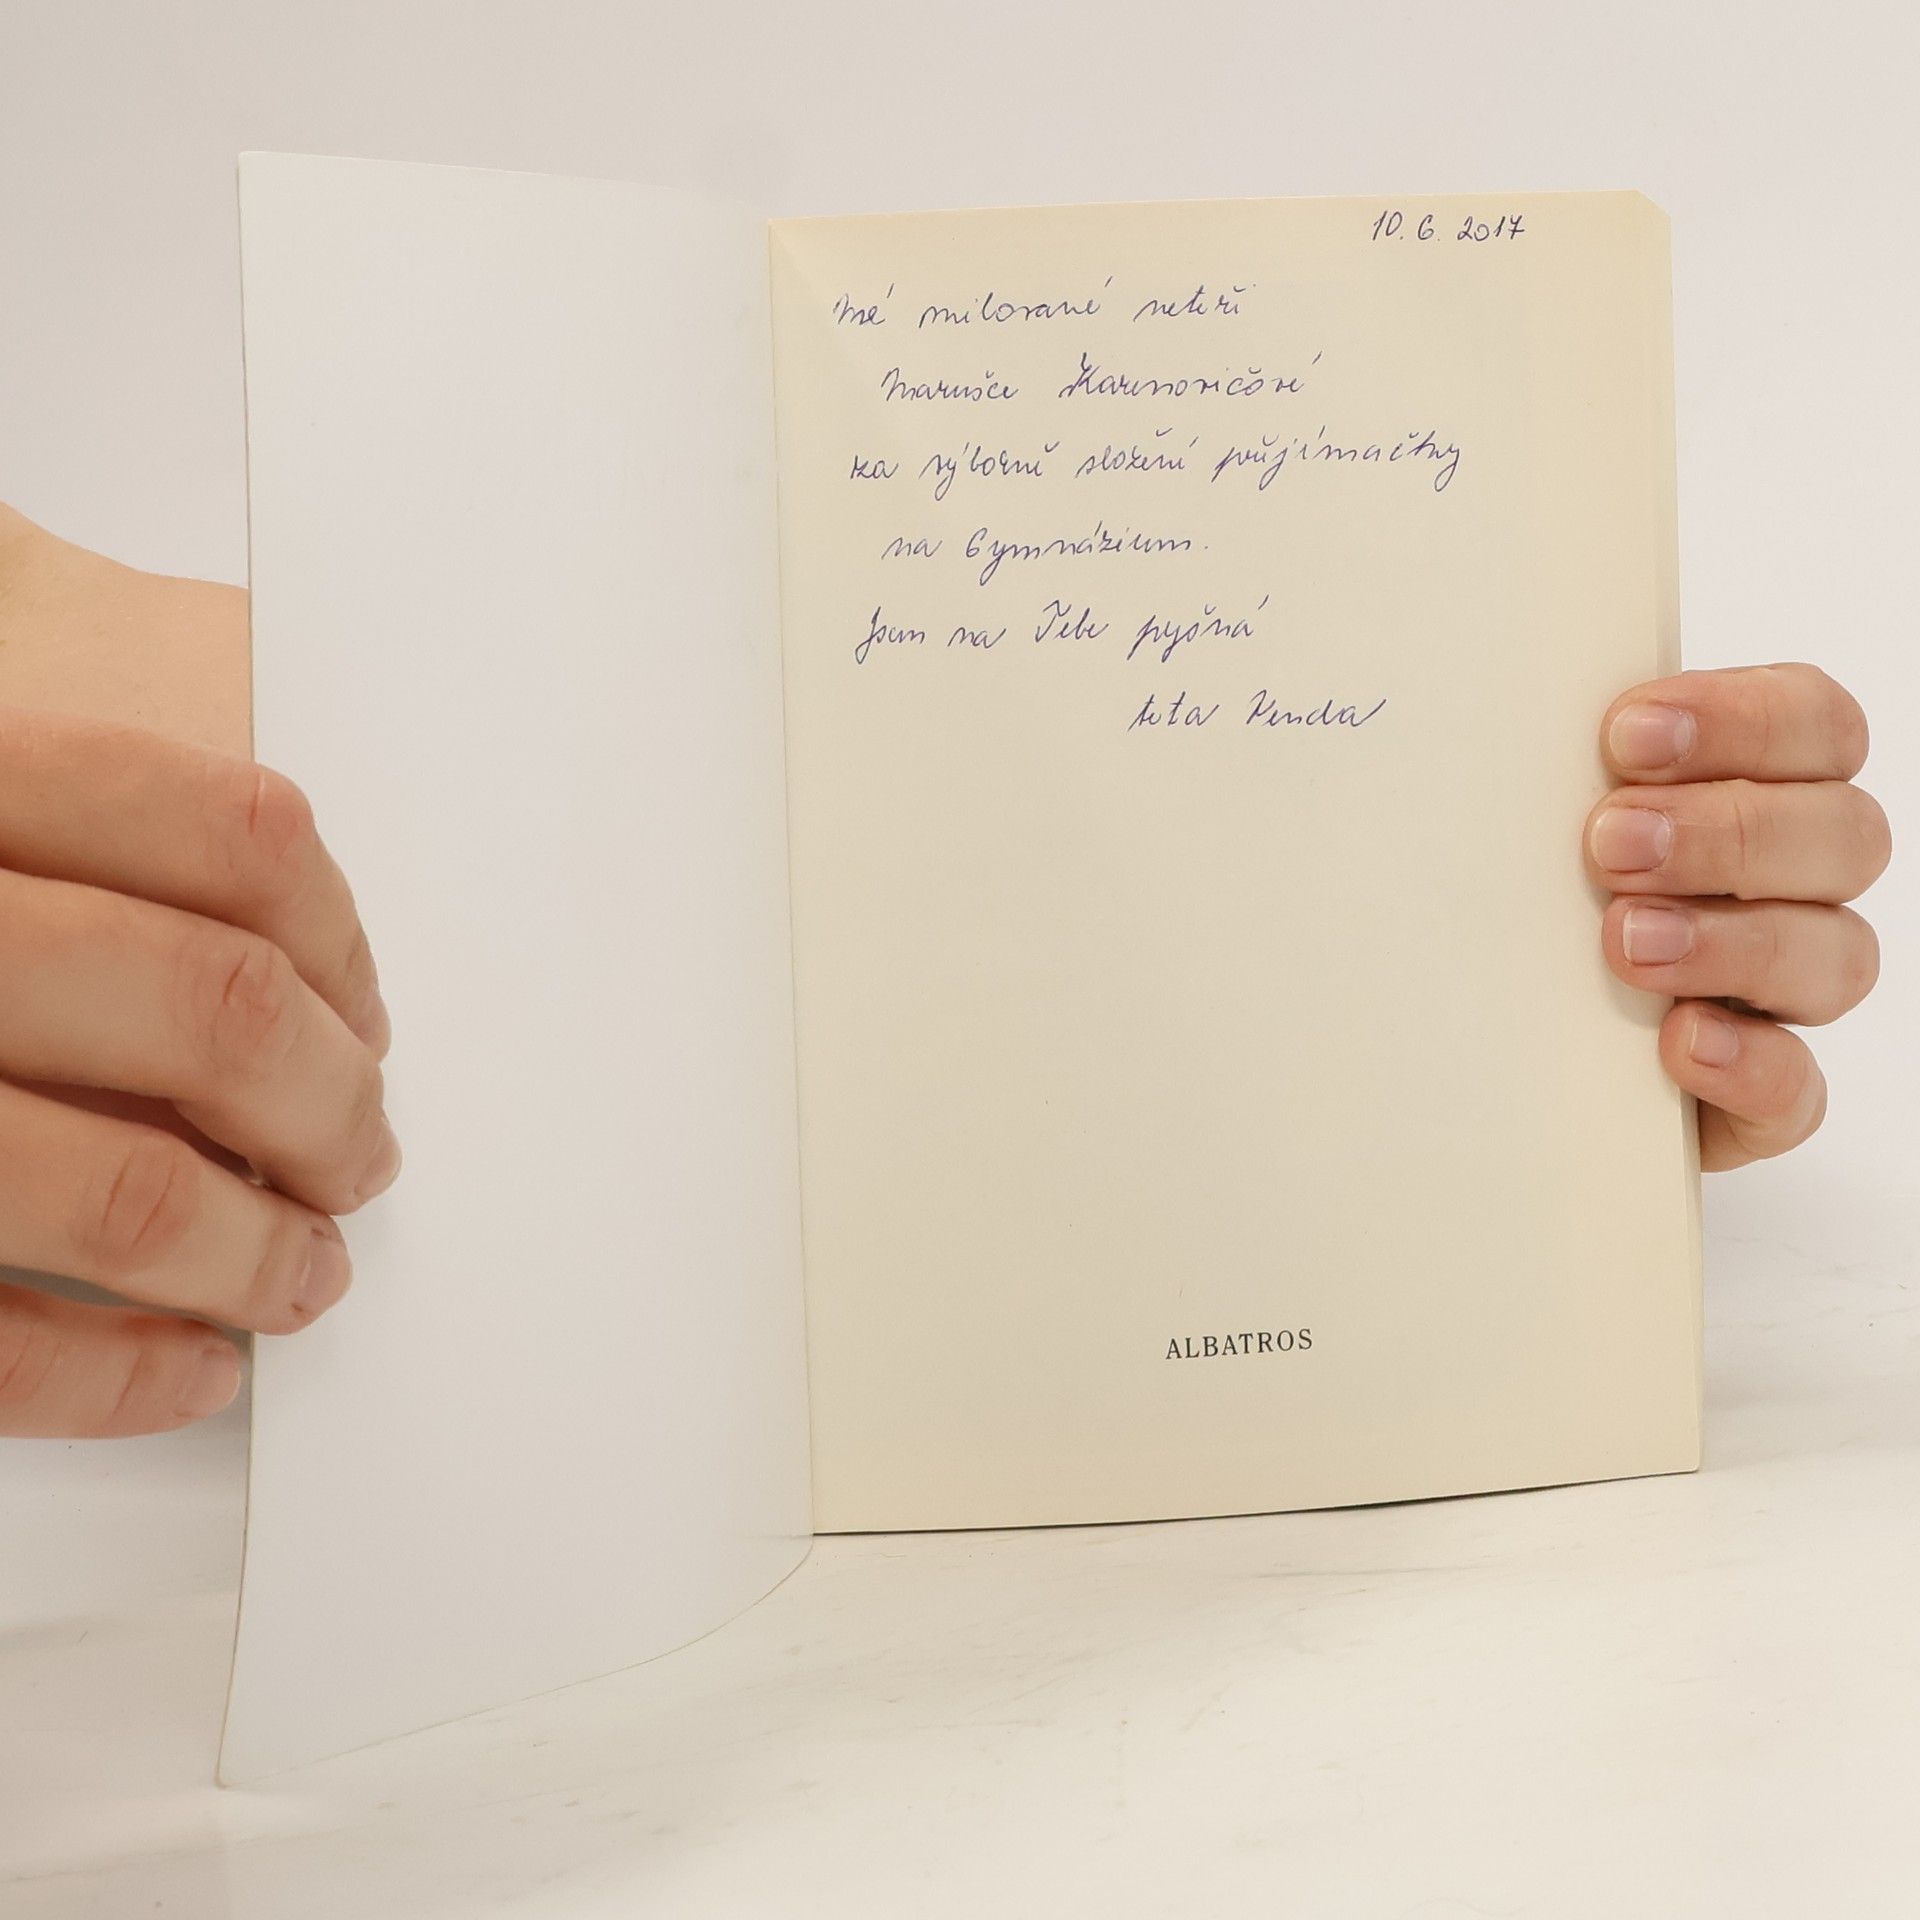 10. 6. 2017
Mé milované neteři
Marušce
za výborně složení přijímačky
na Gymnázium.
Jsem na Tebe pyšná
teta Venda
ALBATROS